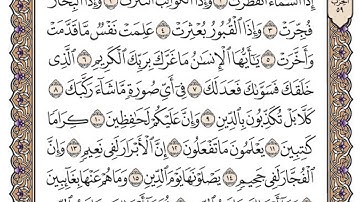 إِذَا ٱلسَّمَآءُ ٱنفَطَرَتْ ١ وَإِذَا ٱلْكَوَاكِبُ ٱنتَثَرَتْ ٢ وَإِذَا ٱلْبِحَارُ
فُجِّرَتْ ٣ وَإِذَا ٱلْقُبُورُ بُعْثِرَتْ ٤ عَلِمَتْ نَفْسٌ مَّا قَدَّمَتْ
وَأَخَّرَتْ ٥ يَٰٓأَيُّهَا ٱلْإِنسَٰنُ مَا غَرَّكَ بِرَبِّكَ ٱلْكَرِيمِ ٦ ٱلَّذِى
خَلَقَكَ فَسَوَّىٰكَ فَعَدَلَكَ ٧ فِىٓ أَىِّ صُورَةٍ مَّا شَآءَ رَكَّبَكَ ٨
كَلَّا بَلْ تُكَذِّبُونَ بِٱلدِّينِ ٩ وَإِنَّ عَلَيْكُمْ لَحَٰفِظِينَ ١٠ كِرَامًا
كَٰتِبِينَ ١١ يَعْلَمُونَ مَا تَفْعَلُونَ ١٢ إِنَّ ٱلْأَبْرَارَ لَفِى نَعِيمٍ ١٣ وَإِنَّ
ٱلْفُجَّارَ لَفِى جَحِيمٍ ١٤ يَصْلَوْنَهَا يَوْمَ ٱلدِّينِ ١٥ وَمَا هُمْ عَنْهَا بِغَآئِبِينَ
الحزب
٥٩